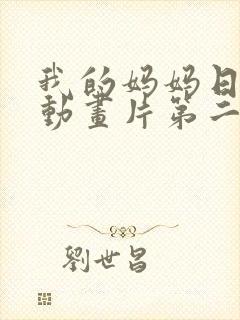 我的妈妈日
動畫片第二
劉世昌